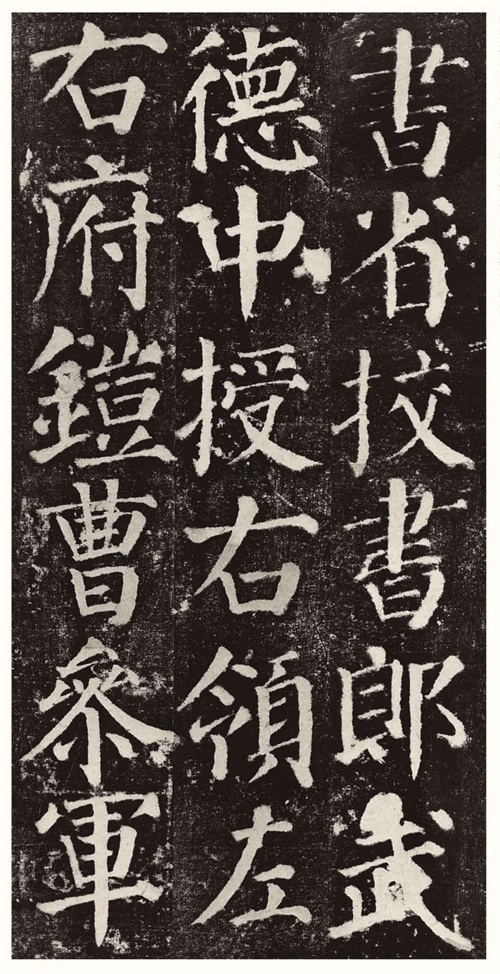 書省挍書郎武
德中授右領左
右府鎧曹叅軍